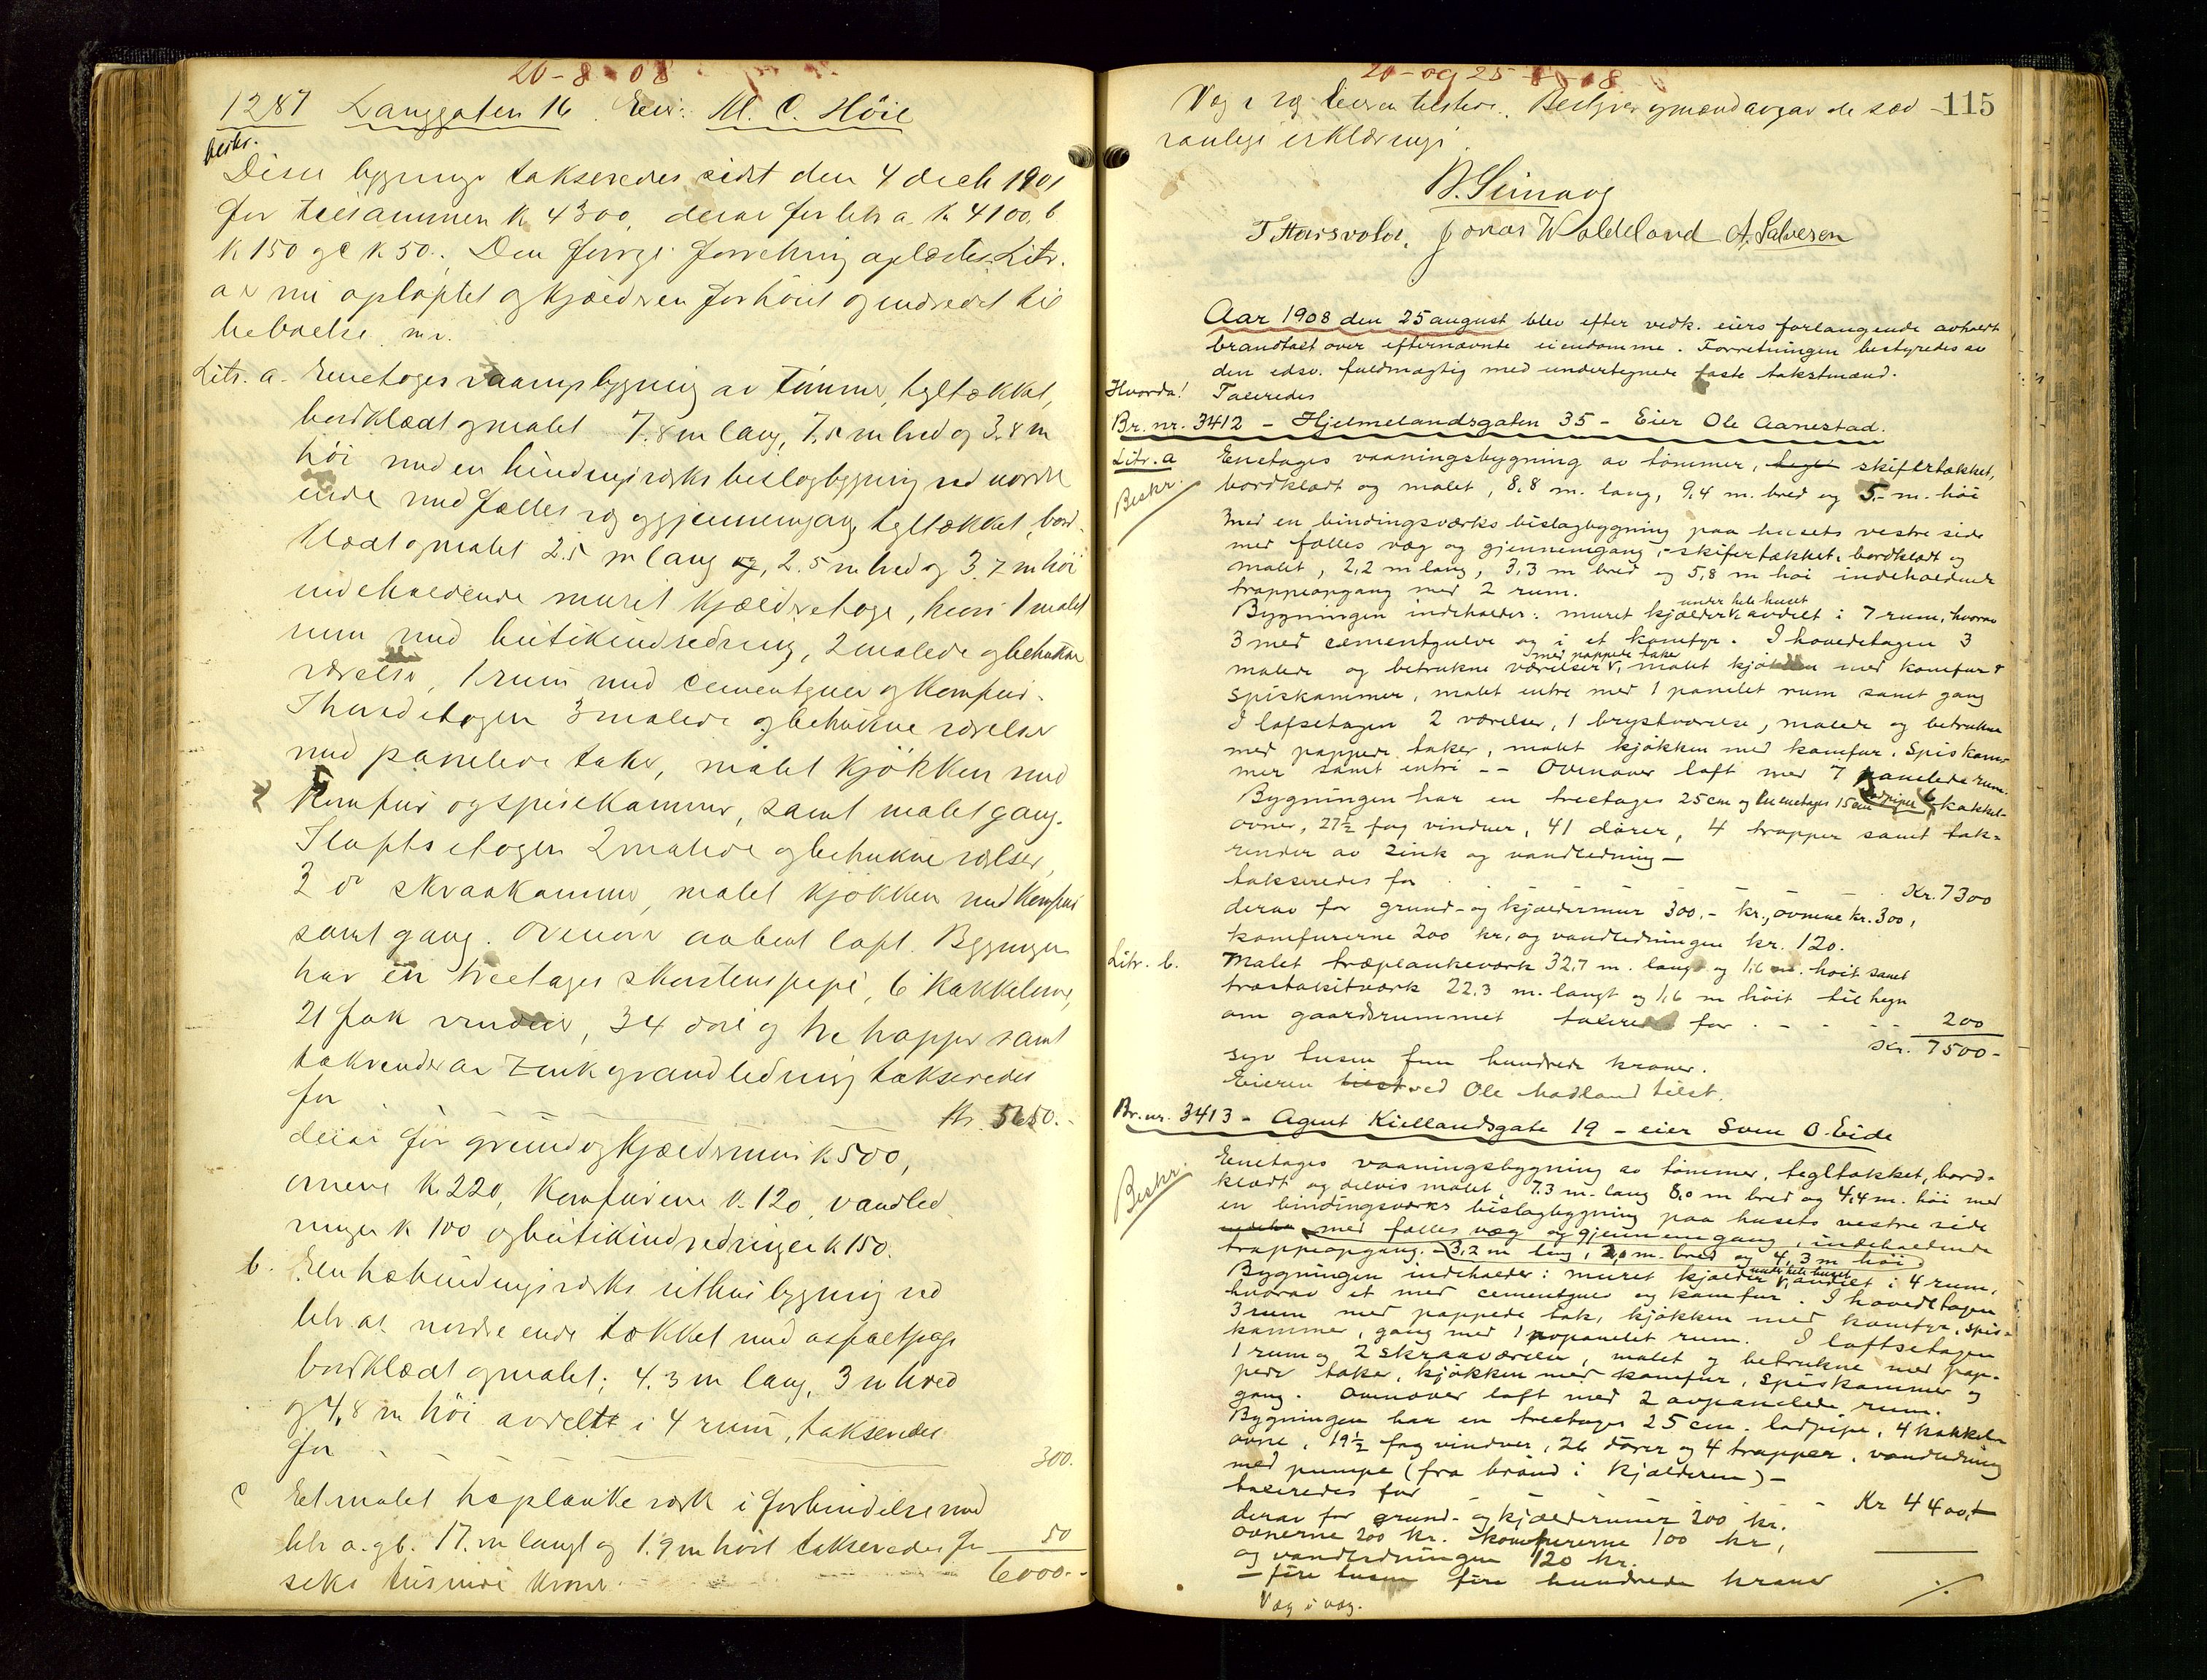 20-8-08
1287 Langgaten 16. Eier: M. O. Höie
Beskr.
Disse bygninger takseredes sidst den 4 decb 1901
for tilsammen k 4300, derav for litr a. k 4100, b
k 150 og c k 50. Den forrige forretning oplæstes. Litr.
a er nu opløftet og kjælderen forhöiet og indredet til
beboelse m.v.
Litr. a. Enetages vaaningsbygning av tømmer, tegltækket,
bordklædt og malet 7.8 m lang, 7.5 m bred og 3.8 m
höi med en bindingsverks beslagbygning ved nordre
ende med fælles væg og gjennemgang, tegltækket, bord-
klædt og malet 2.5 m lang og, 2.5 m bred og 3.7 m höi
indeholdende muret kjælderetage, hvori 1 malet
rum med butikindredning, 2 malede og betrukne
værelser, 1 rum med cementgulv og komfur.
I hovedetagen 3 malede og betrukne værelser
med panelede taker, malet kjökken med
komfur og spisekammer, samt malet gang.
I loftsetagen 2 malede og betrukne værelser,
2 do skraakammer, malet kjøkken med komfur
samt gang. Ovenover aabent loft. Bygningen
har en treetages skorstenspipe, 6 kakkelovne,
21 fak vinduer, 34 döre og tre trapper samt
takrender av zink og vandledning takseredes
for kr. 5650.-
derav for grund og kjældermur k 500,
ovnene k 220, komfurene k. 120, vandled-
ningen k 100 og butikindredningen k 150.
b. En bindingsverks uthusbygning ved
litr. a's nordre ende tækket med asfaltpap
bordklædt og malet; 4.3 m lang, 3 m bred
og 4,8 m höi avdelt i 4 rum, takseredes
for 300.
c Et malet træplankeverk i forbindelse med
litr a. og b. 17. m langt og 1.9 m höit takseredes for 50
seks tusinde kroner. 6000.-
20- og 25-8-08
115
Væg i væg. Eieren tilstede. Bestyrer og mænd avgav de sæd-
vanlige erklæringer.
Jonas Waldeland A. Salvesen
Aar 1908 den 25 august blev efter vedk. eiers forlangende avholdt
brandtakst over efternævnte eiendomme. Forretningen bestyredes av
den edsv. fuldmægtig med undertegnede faste takstmænd.
Hvorda! Taxeredes
Br. nr. 3412 - Hjelmelandsgaten 35 - Eier Ole Aanestad.
Litr. a Enetages vaaningsbygning av tömmer, tegl skifertækket,
Beskr. bordklædt og malet, 8,8 m. lang, 9,4 m. bred og 5,- m. höi
med en bindingsværks bislagbygning paa husets vestre side
med fælles væg og gjennemgang, skifertækket, bordklædt og
malet, 2,2 m lang, 3,3 m bred og 5,8 m höi indeholdende
trappeopgang med 2 rum.
Bygningen indeholder: muret kjælder under hele huset avdelt i 7 rum, hvorav
3 med cementgulve og i et komfyr. I hovedetagen 3
malede og betrukne værelser med pappede taker, malet kjøkken med komfur &
spiskammer, malet entre med 1 panelet rum samt gang
I loftsetagen 2 værelser, 1 brystværelse, malede og betrukne
med pappede taker, malet kjøkken med komfur, spiskam-
mer samt entré -- Ovenover loft med 7 panelede rum.
Bygningen har en treetages 25 cm og en enetages 15 cm ladpiper 6 kakkel-
ovner, 27½ fag vinduer, 41 dører, 4 trapper samt tak-
render av zink og vandledning -
takseredes for Kr. 7300
derav for grund- og kjældermur 300.- kr., ovnene kr. 300,
komfurerne 200 kr, og vandledningen kr. 120.
Litr. b. Malet træplankeværk 32,7 m. langt og 1,6 m. høit samt
træstakitværk 22,3 m. langt og 1,6 m höit til hegn
om gaardsrummet taxeredes for 200
Kr. 7500-
syv tusen fem hundrede kroner.
Eieren tilst ved Ole Hadland tilst.
Br. nr. 3413 - Agent Kiellandsgate 19 - eier Sven O. Eide
Beskr. Enetages vaaningsbygning av tømmer, tegltækket, bord-
klædt og delvis malet, 7.3 m. lang 8,0 m bred og 4,4 m. höi med
en bindingsværks bislagbygning paa husets vestre side
med fælles væg og gjennemgang, indeholdende
trappeopgang. 3,2 m lang, 2,0 m. bred og 4,3 m höi
Bygningen indeholder: muret kjælder under hele huset avdelt i 4 rum,
hvorav et med cementgulv og komfur. I hovedetagen
3 rum med pappede tak, kjøkken med komfyr, spis-
kammer, gang med 1 panelet rum. I loftsetagen
1 rum og 2 skraaværelser, malet og betrukne med pap-
pede taker, kjøkken med komfur, spiskammer og
gang. Ovenover loft med 2 avpanelede rum.
Bygningen har en treetages 25 cm. ladpipe, 4 kakkel-
ovne, 19½ fag vinduer, 26 dører og 4 trapper, vandledning
med pumpe (fra brønd i kjælderen) -
taxeredes for Kr 4400,-
derav for grund- og kjældermur 200 kr.
ovnerne 200 kr. komfurerne 100 kr,
og vandledningen 120 kr.
- fire tusen fire hundrede kroner
Væg i væg.